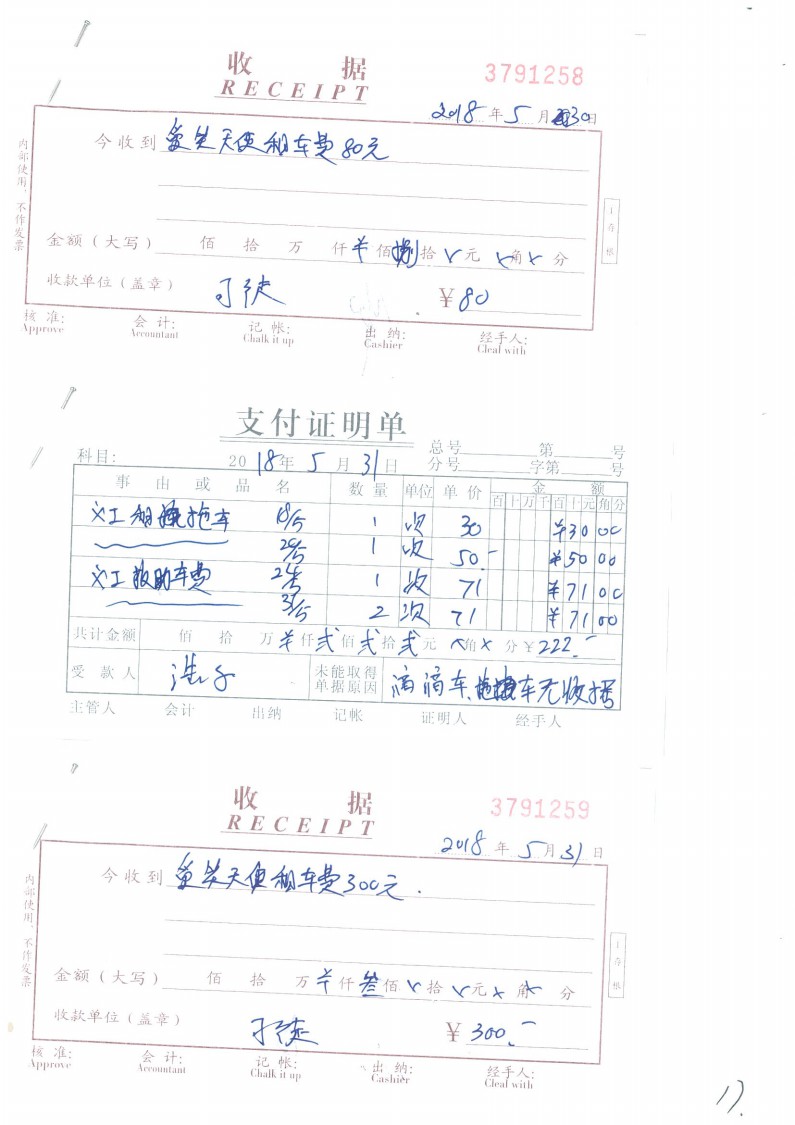 收 据
RECEIPT
3791258
2018 年 5 月 30 日
今收到 爱笑天使租车费80元
金额（大写） 佰 拾 万 仟 ¥ 佰 捌 拾 ν 元 × 角 × 分
收款单位（盖章） ¥ 80
核 准: 会 计: 记 帐: 出 纳: 经手人:
Approve Accountant Chalk it up Cashier Cleal with
内部使用，不作发票
支付证明单
科目: 2018年 5 月 31 日 总号 第 号
分号 字第 号
事 由 或 品 名 数 量 单位 单 价 金 额
百 十 万 千 百 十 元 角 分
义工租 拖车 18/5 1 次 30 ¥30 00
1 次 50.- ¥50 00
义工救助车费 1 次 71 ¥71 00
31/5 2 次 71 ¥71 00
共计金额 佰 拾 万 ¥ 仟 贰 佰 贰 拾 贰 元 × 角 × 分 ¥ 222.-
受 款 人 未能取得单据原因 滴滴车、 车无收据
主管人 会计 出纳 记帐 证明人 经手人
收 据
RECEIPT
3791259
2018 年 5 月 31 日
今收到 爱笑天使租车费300元.
金额（大写） 佰 拾 万 ¥ 仟 叁 佰 ν 拾 ν 元 × 角 × 分
收款单位（盖章） ¥ 300.-
核 准: 会 计: 记 帐: 出 纳: 经手人:
Approve Accountant Chalk it up Cashier Cleal with
内部使用，不作发票
17.